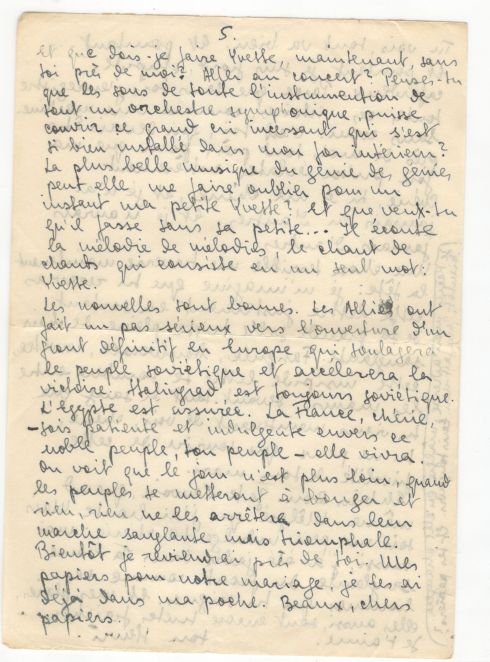 5.
Et que dois-je faire Yvette, maintenant, sans
toi près de moi? Aller au concert? Penses-tu
que les sons de toute l'instrumention de
tout un orchestre symphonique, puisse
couvrir ce grand cri incessant qui s'est
si bien installé dans mon for intérieur?
La plus belle musique du génie des génies
peut elle, me faire oublier pour un
instant ma petite Yvette? Et que veux-tu
qu'il fasse sans sa petite... Je écoute
la mélodie de mélodies.. le chant de
chants qui consiste en un seul mot:
Yvette.
Les nouvelles sont bonnes. Les Alliés ont
fait un pas sérieux vers l'ouverture d'un
front définitif en Europe qui soulagera
le peuple soviétique et accelerera la
victoire. Stalingrad est toujours soviétique.
L'Egypte est assurée. La France, chérie,
- sois patiente et indulgente envers ce
noble peuple, ton peuple - elle vivra.
On voit que le jour n'est plus loin, quand
les peuples se metteront à bouger et
rien, rien ne les arrêtera dans leur
marche sanglante mais triomphale.
Bientôt je reviendrai près de toi. Mes
papiers pour notre mariage, je les ai
déjà dans ma poche. Beaux, chers
papiers.